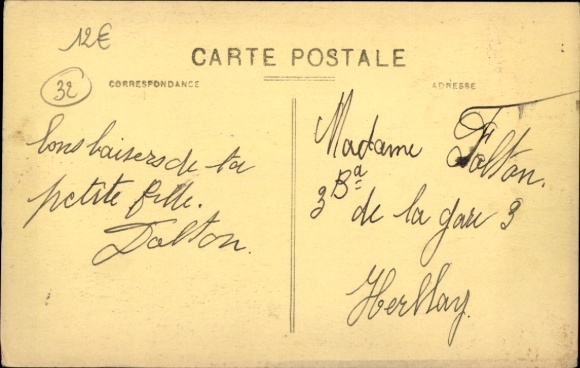 12€
CARTE POSTALE
32
CORRESPONDANCE
ADRESSE
bons baisers de ta
petite fille.
Dalton.
Madame Dalton.
3 Bd
de la gare 3
Herblay.